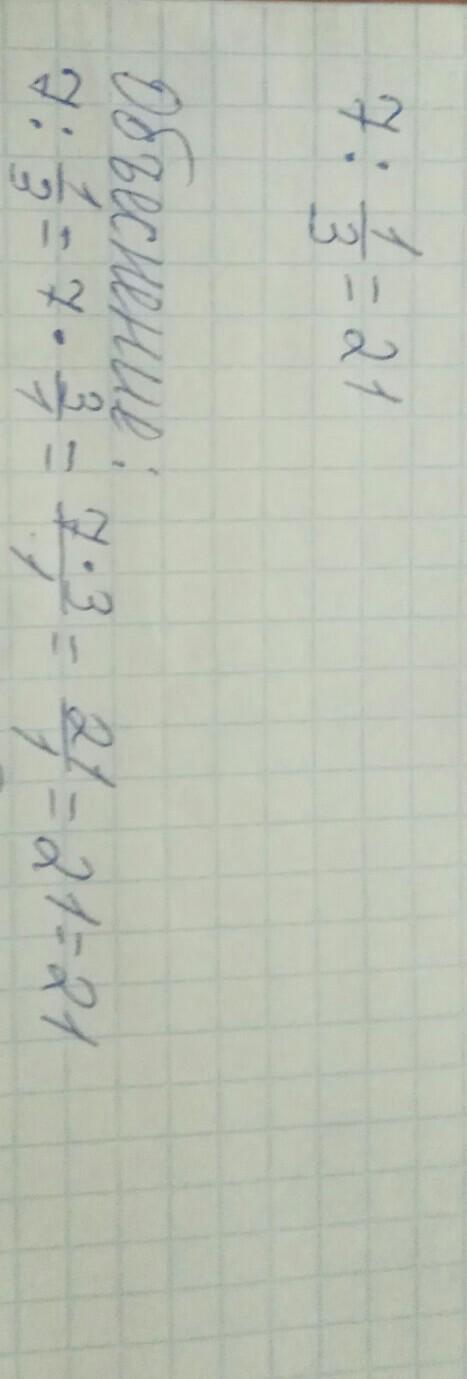 7 : 1/3 = 21
Обьеснение:
7 : 1/3 = 7 · 3/1 = 7·3/1 = 21/1 = 21 = 21